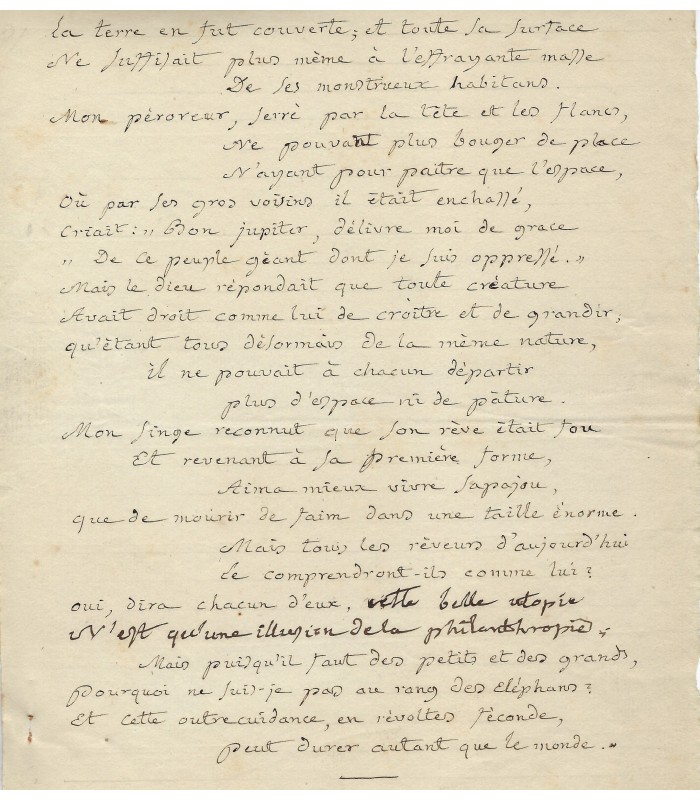 La terre en fut couverte; et toute sa surface
Ne suffisait plus même à l'effrayante masse
De ses monstrueux habitans.
Mon péroreur, serré par la tête et les flancs,
Ne pouvant plus bouger de place
N'ayant pour paitre que l'espace,
Où par ses gros voisins il était enchassé,
Criait: „ Bon jupiter, délivre moi de grace
„ De ce peuple géant dont je suis oppressé. „
Mais le dieu répondait que toute créature
Avait droit comme lui de croître et de grandir;
qu'étant tous désormais de la même nature,
il ne pouvait à chacun départir
plus d'espace ni de pâture.
Mon singe reconnut que son rêve était fou
Et revenant à sa première forme,
Aima mieux vivre sapajou,
que de mourir de faim dans une taille énorme.
Mais tous les rêveurs d'aujourd'hui
Le comprendront-ils comme lui?
oui, dira chacun d'eux, cette belle utopie
N'est qu'une illusion de la philanthropie;
Mais puisqu'il faut des petits et des grands,
pourquoi ne suis-je pas au rang des Eléphans?
Et cette outrecuidance, en révoltes féconde,
peut durer autant que le monde. „